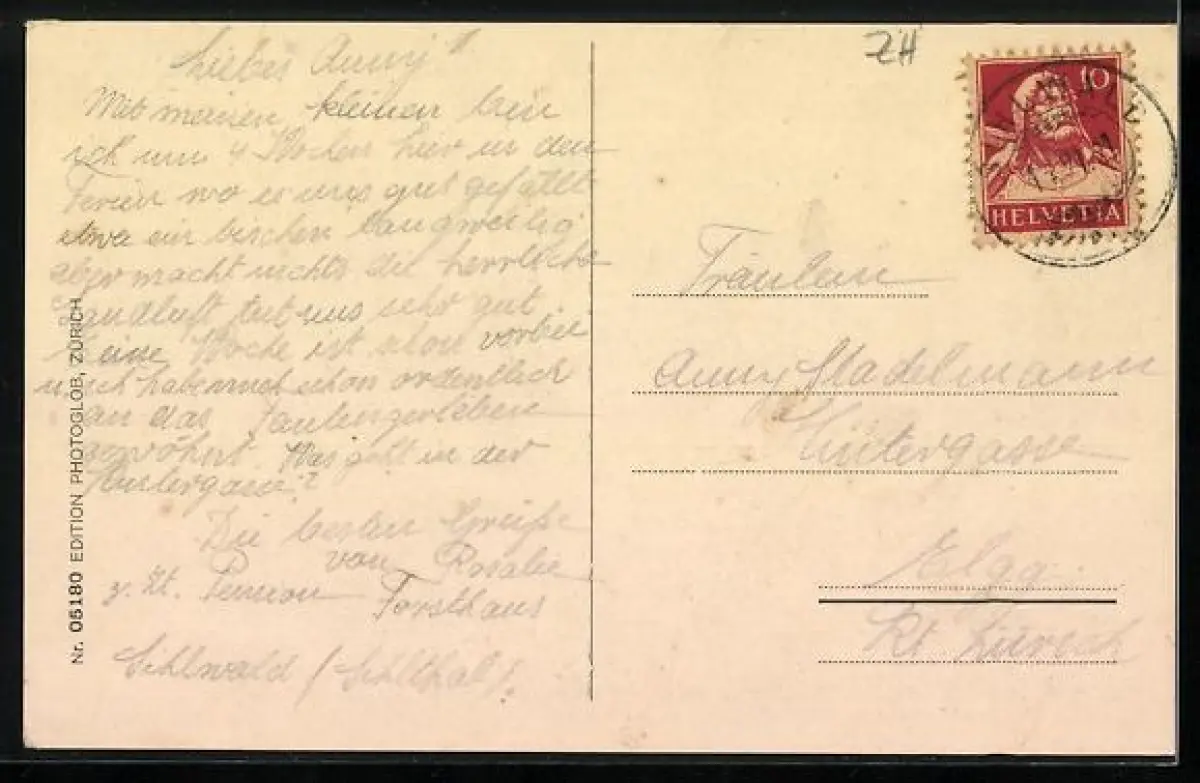 Liebes Anny!
Mit meinen kleinen bin
ich um 4 Wochen hier in den
Ferien wo es uns gut gefällt
etwa ein bischen langweilig
aber macht nichts die herrliche
Landluft tut uns sehr gut
eine Woche ist schon vorbei
u. ich habe mich schon ordentlich
an das Faulenzerleben
gewöhnt. Was geht in der
Hintergasse?
Die besten Grüsse
von Rosalie
z. Zt. Pension Forsthaus
Sihlwald (Sihlthal).
Nr. 05180 EDITION PHOTOGLOB, ZÜRICH
ZH
10
HELVETIA
Fräulein
Anny Stadelmann
Hintergasse
Elgg
Kt. Zürich